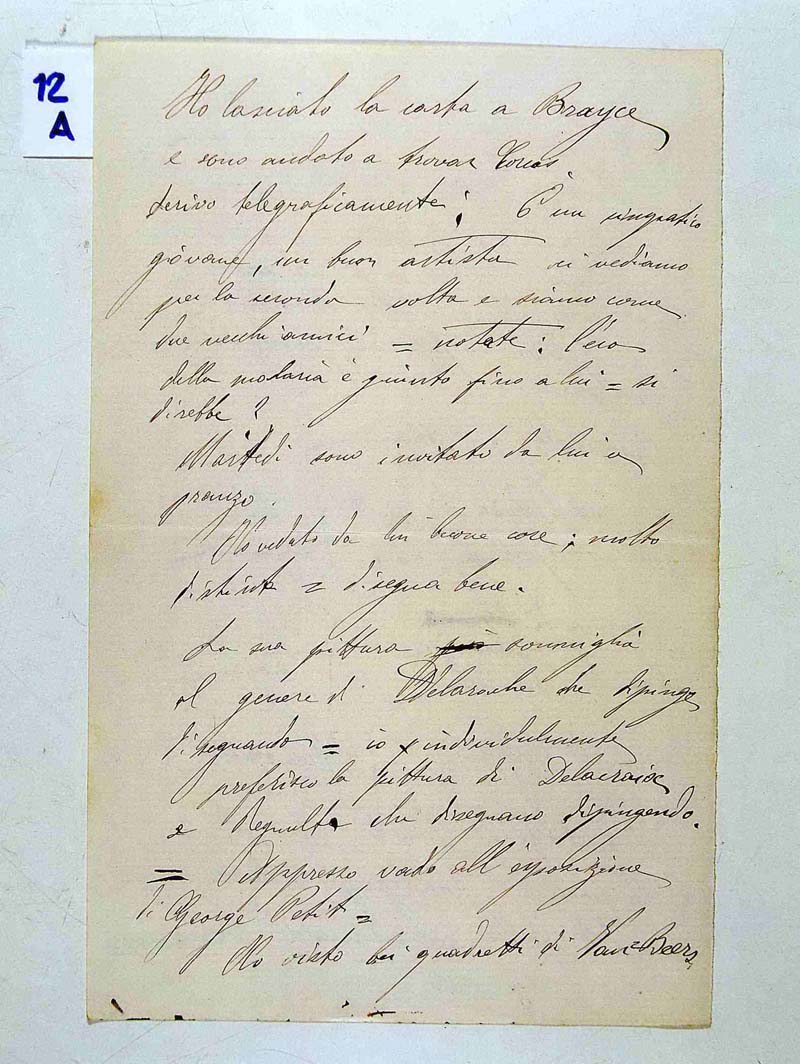 12
A
Ho lasciato la carta a Brayce
e sono andato a trovar
scrivo telegraficamente; È un simpatico
giovane, un buon artista ci vediamo
per la seconda volta e siamo come
due vecchi amici = notate: l'eco
della malaria è giunto fino a lui = si
direbbe?
Martedì sono invitato da lui a
pranzo.
Ho veduto da lui buone cose; molto
distinte = disegna bene.
La sua pittura più somiglia
al genere di Delaroche che dipinge
disegnando = io individulmente
preferisco la pittura di Delacroix
e Regnult che disegnano dipingendo.
= Appresso vado all'esposizione
di George Petit =
Ho visto bei quadretti di Van Beers,